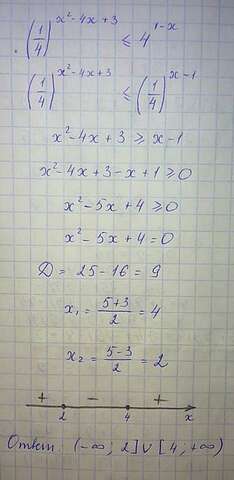 . (1/4)^(x²-4x+3) ≤ 4^(1-x)
(1/4)^(x²-4x+3) ≤ (1/4)^(x-1)
x²-4x+3 ≥ x-1
x²-4x+3-x+1 ≥ 0
x²-5x+4 ≥ 0
x²-5x+4 = 0
D = 25-16 = 9
x₁ = (5+3)/2 = 4
x₂ = (5-3)/2 = 2
+ - +
2 4 x
Ответ: (-∞; 2] ∪ [4; +∞)